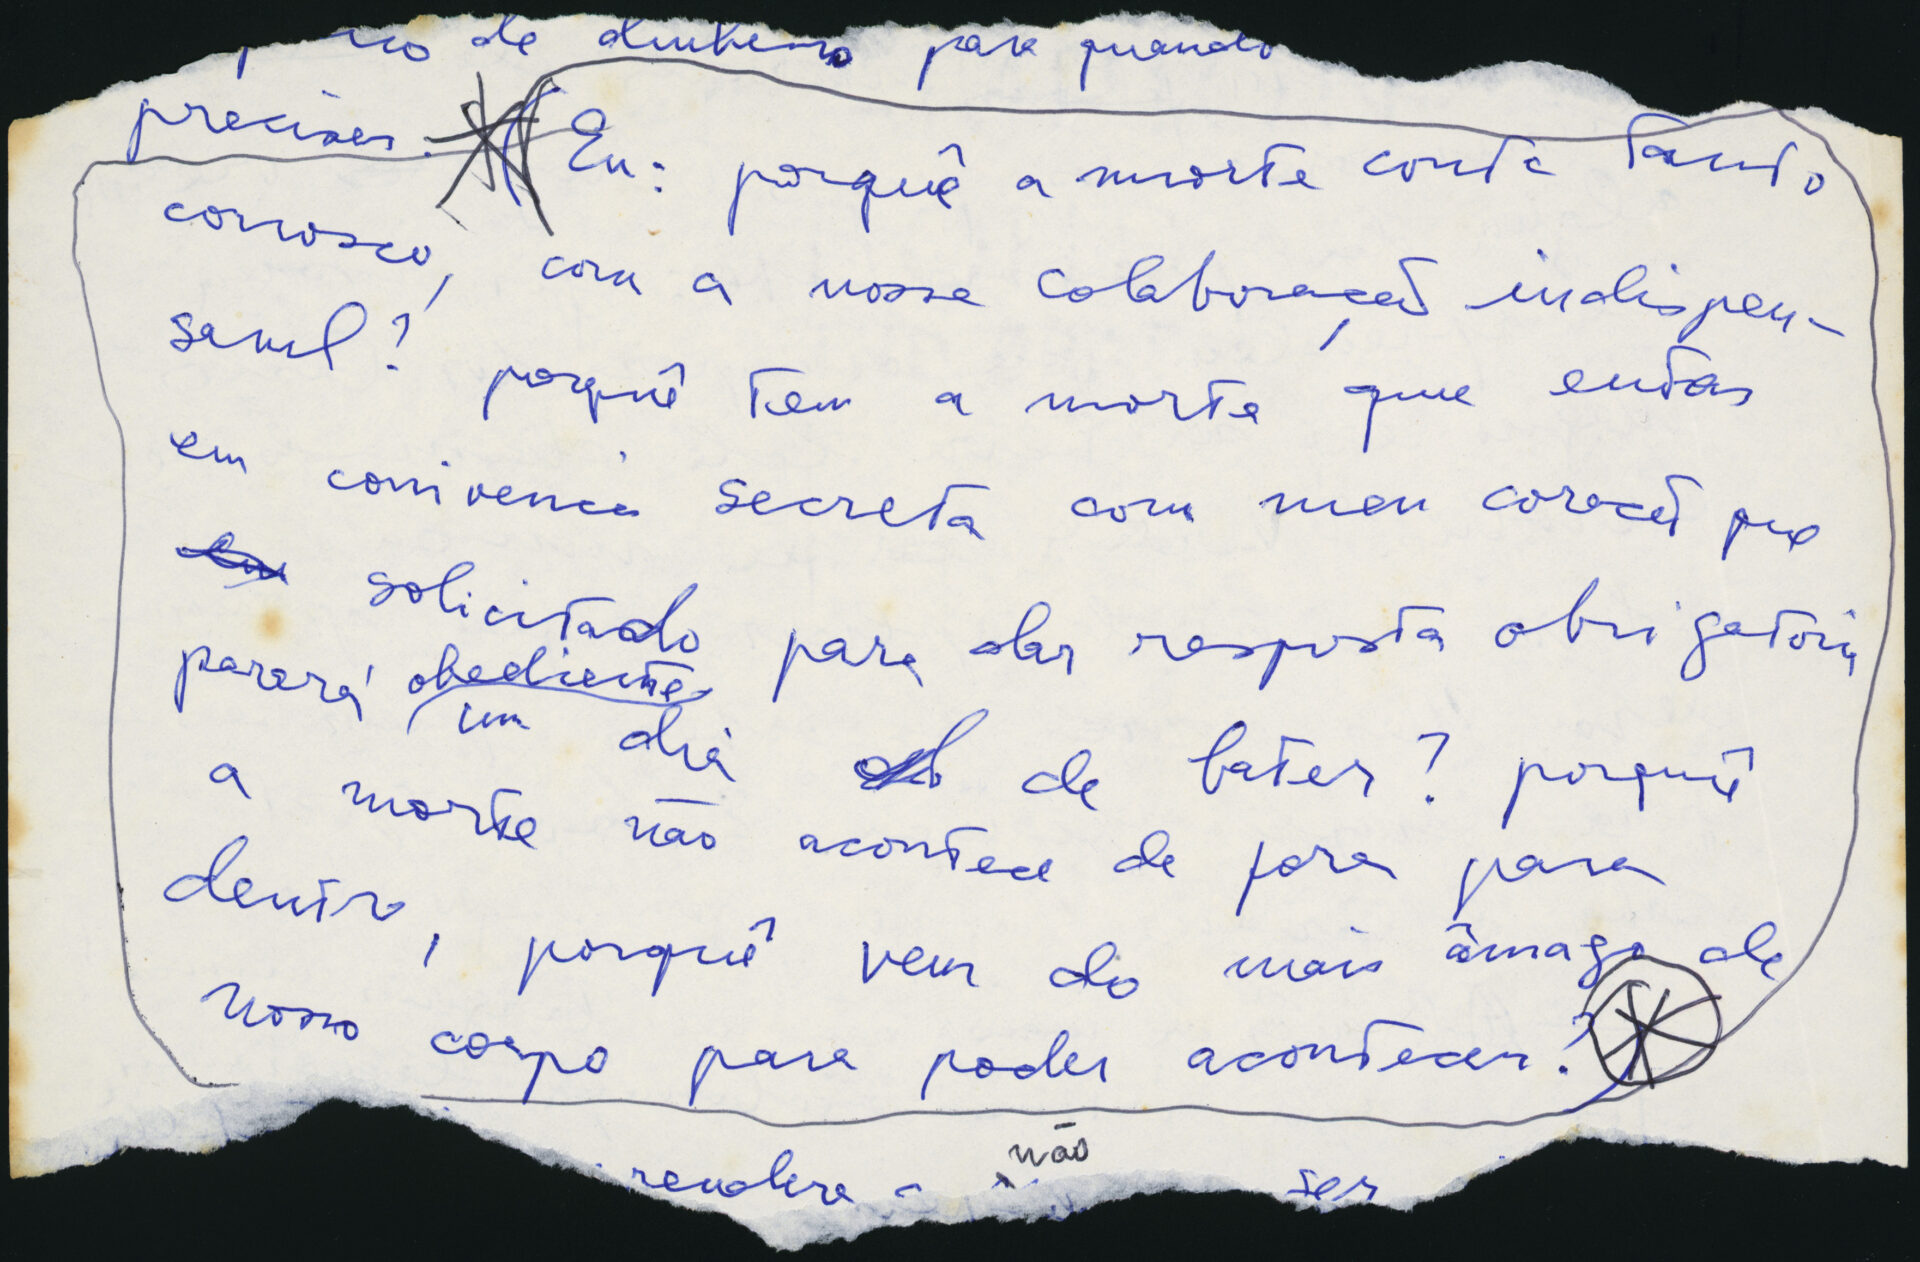 de dinheiro para quando
precisar. (Eu: porquê a morte conta tanto
conosco, com a nossa colaboração indispen-
savel? porquê tem a morte que entrar
em conivencia secreta com meu coração que
solicitado para dar resposta obrigatoria
parará obediente
um dia de bater? porquê
a morte não acontece de fora para
dentro, porquê vem do mais âmago de
nosso corpo para poder acontecer?)
não
ser